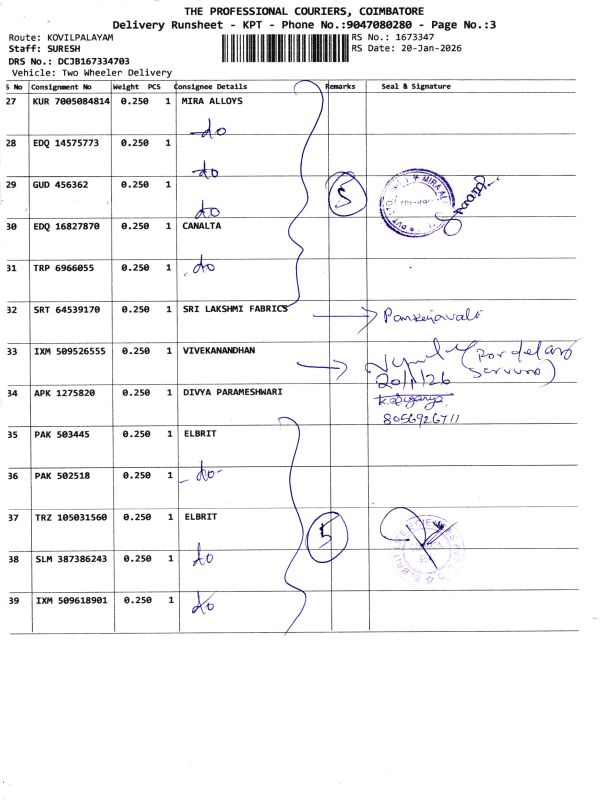 THE PROFESSIONAL COURIERS, COIMBATORE
Delivery Runsheet - KPT - Phone No.:9047080280 - Page No.:3
Route: KOVILPALAYAM
RS No.: 1673347
Staff: SURESH
RS Date: 20-Jan-2026
DRS No.: DCJB167334703
Vehicle: Two Wheeler Delivery
S No Consignment No Weight PCS Consignee Details Remarks Seal & Signature
27 KUR 7005084814 0.250 1 MIRA ALLOYS
do
28 EDQ 14575773 0.250 1
do
29 GUD 456362 0.250 1
do
5
30 EDQ 16827870 0.250 1 CANALTA
31 TRP 6966055 0.250 1 do
32 SRT 64539170 0.250 1 SRI LAKSHMI FABRICS
33 IXM 509526555 0.250 1 VIVEKANANDHAN
20/1/26
34 APK 1275820 0.250 1 DIVYA PARAMESHWARI
8056926711
35 PAK 503445 0.250 1 ELBRIT
36 PAK 502518 0.250 1 do
37 TRZ 105031560 0.250 1 ELBRIT
5
38 SLM 387386243 0.250 1 do
39 IXM 509618901 0.250 1 do